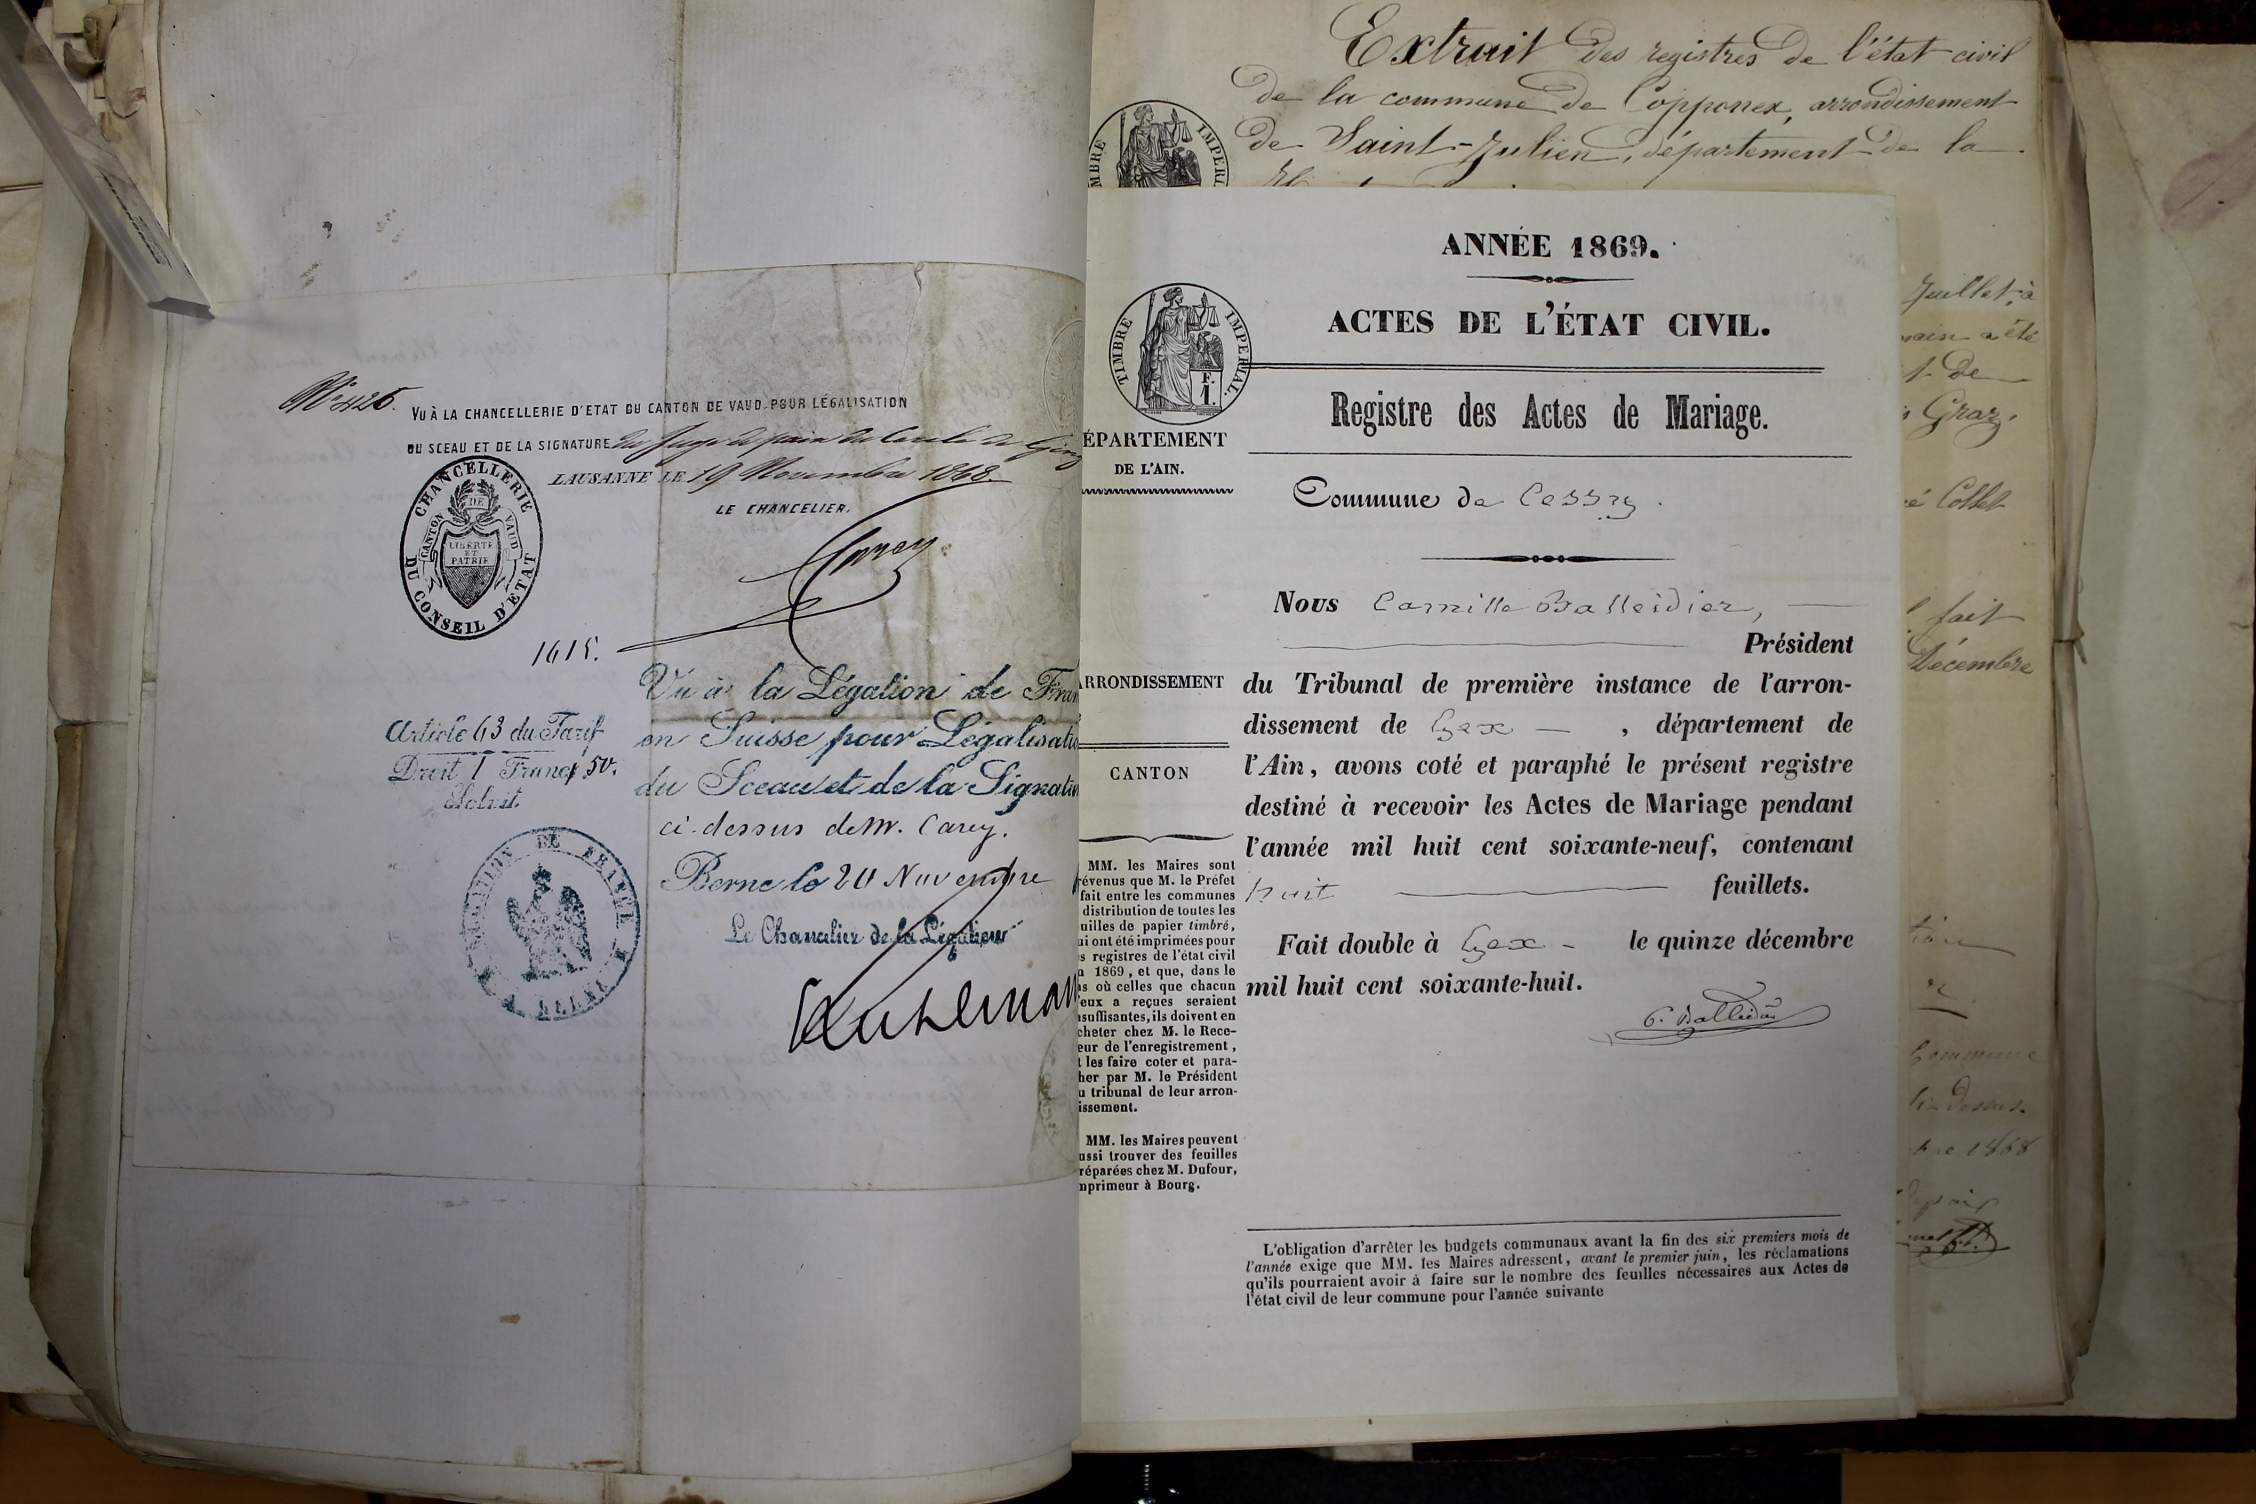 Nº 426.
VU À LA CHANCELLERIE D'ETAT DU CANTON DE VAUD POUR LÉGALISATION
DU SCEAU ET DE LA SIGNATURE du Juge de paix du Cercle de
LAUSANNE LE 19 Novembre 1868.
LE CHANCELIER,
Carey
CHANCELLERIE
DU CONSEIL D'ETAT
DE
CANTON VAUD
LIBERTÉ
ET
PATRIE
1615.
Vu à la Légation de Fran
en Suisse pour Légalisatio
du Sceau et de la Signatu
ci-dessus de M. Carey.
Berne le 20 Novembre
Le Chancelier de la Légation
Article 63 du Tarif
Droit 1 Franc 50.
DE FRANCE
Extrait des registres de l'état civil
de la commune de Copponex, arrondissement
de Saint-Julien, département de la
MBRE IMPERI
Juillet, à
a été
de
Graz,
Collet
fait
Décembre
Commune
ci-dessus.
bre 1868
ANNÉE 1869.
ACTES DE L'ÉTAT CIVIL.
TIMBRE IMPERIAL.
F.
1.
Registre des Actes de Mariage.
ÉPARTEMENT
DE L'AIN.
Commune de Cessy.
Nous Camille Balleidier,
Président
ARRONDISSEMENT
du Tribunal de première instance de l'arron-
dissement de Gex , département de
CANTON
l'Ain, avons coté et paraphé le présent registre
destiné à recevoir les Actes de Mariage pendant
l'année mil huit cent soixante-neuf, contenant
huit feuillets.
Fait double à Gex le quinze décembre
mil huit cent soixante-huit.
C. Balleidier
MM. les Maires sont
révenus que M. le Préfet
fait entre les communes
distribution de toutes les
uilles de papier timbré,
ui ont été imprimées pour
s registres de l'état civil
n 1869, et que, dans le
as où celles que chacun
'eux a reçues seraient
nsuffisantes, ils doivent en
cheter chez M. le Rece-
eur de l'enregistrement,
t les faire coter et para-
her par M. le Président
u tribunal de leur arron-
issement.
MM. les Maires peuvent
ussi trouver des feuilles
réparées chez M. Dufour,
mprimeur à Bourg.
L'obligation d'arrêter les budgets communaux avant la fin des six premiers mois de
l'année exige que MM. les Maires adressent, avant le premier juin, les réclamations
qu'ils pourraient avoir à faire sur le nombre des feuilles nécessaires aux Actes de
l'état civil de leur commune pour l'année suivante